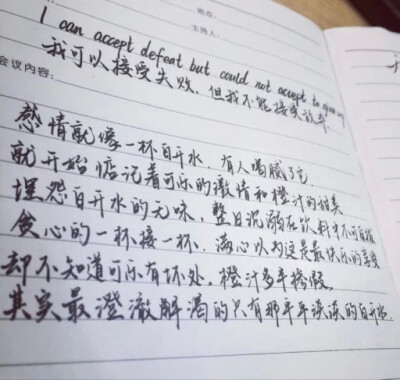 地点:
主持人:
I can accept defeat but could not accept to give up
我可以接受失败,但我不能接受放弃.
会议内容:
感情就像一杯白开水,有人喝腻了它,
就开始惦记着可乐的激情和橙汁的甜美
埋怨白开水的无味,整日沉溺在饮料中不可自拔
贪心的一杯接一杯.满心以为这是最快乐的享受
却不知道可乐有坏处,橙汁多半掺假.
其实最澄澈解渴的只有那平平淡淡的白开水.